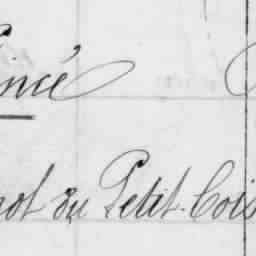 incé
not du Petit-Cois